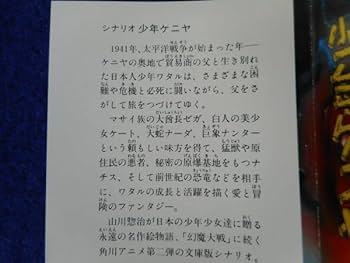 シナリオ 少年ケニヤ
1941年、太平洋戦争が始まった年―
ケニヤの奥地で貿易商の父と生き別れ
た日本人少年ワタルは、さまざまな困
難や危機と必死に闘いながら、父をさ
がして旅をつづけてゆく。
マサイ族の大酋長ゼガ、白人の美少
女ケート、大蛇ダーナ、巨象ナンター
という頼もしい味方を得て、猛獣や原
住民の悪者、秘密の原爆基地をもつナ
チス、そして前世紀の恐竜などを相手
に、ワタルの成長と活躍を描く愛と冒
険のファンタジー。
山川惣治が日本の少年少女達に贈る
永遠の名作絵物語、「幻魔大戦」に続く
角川アニメ第二弾の文庫版シナリオ。
少年ケニヤ